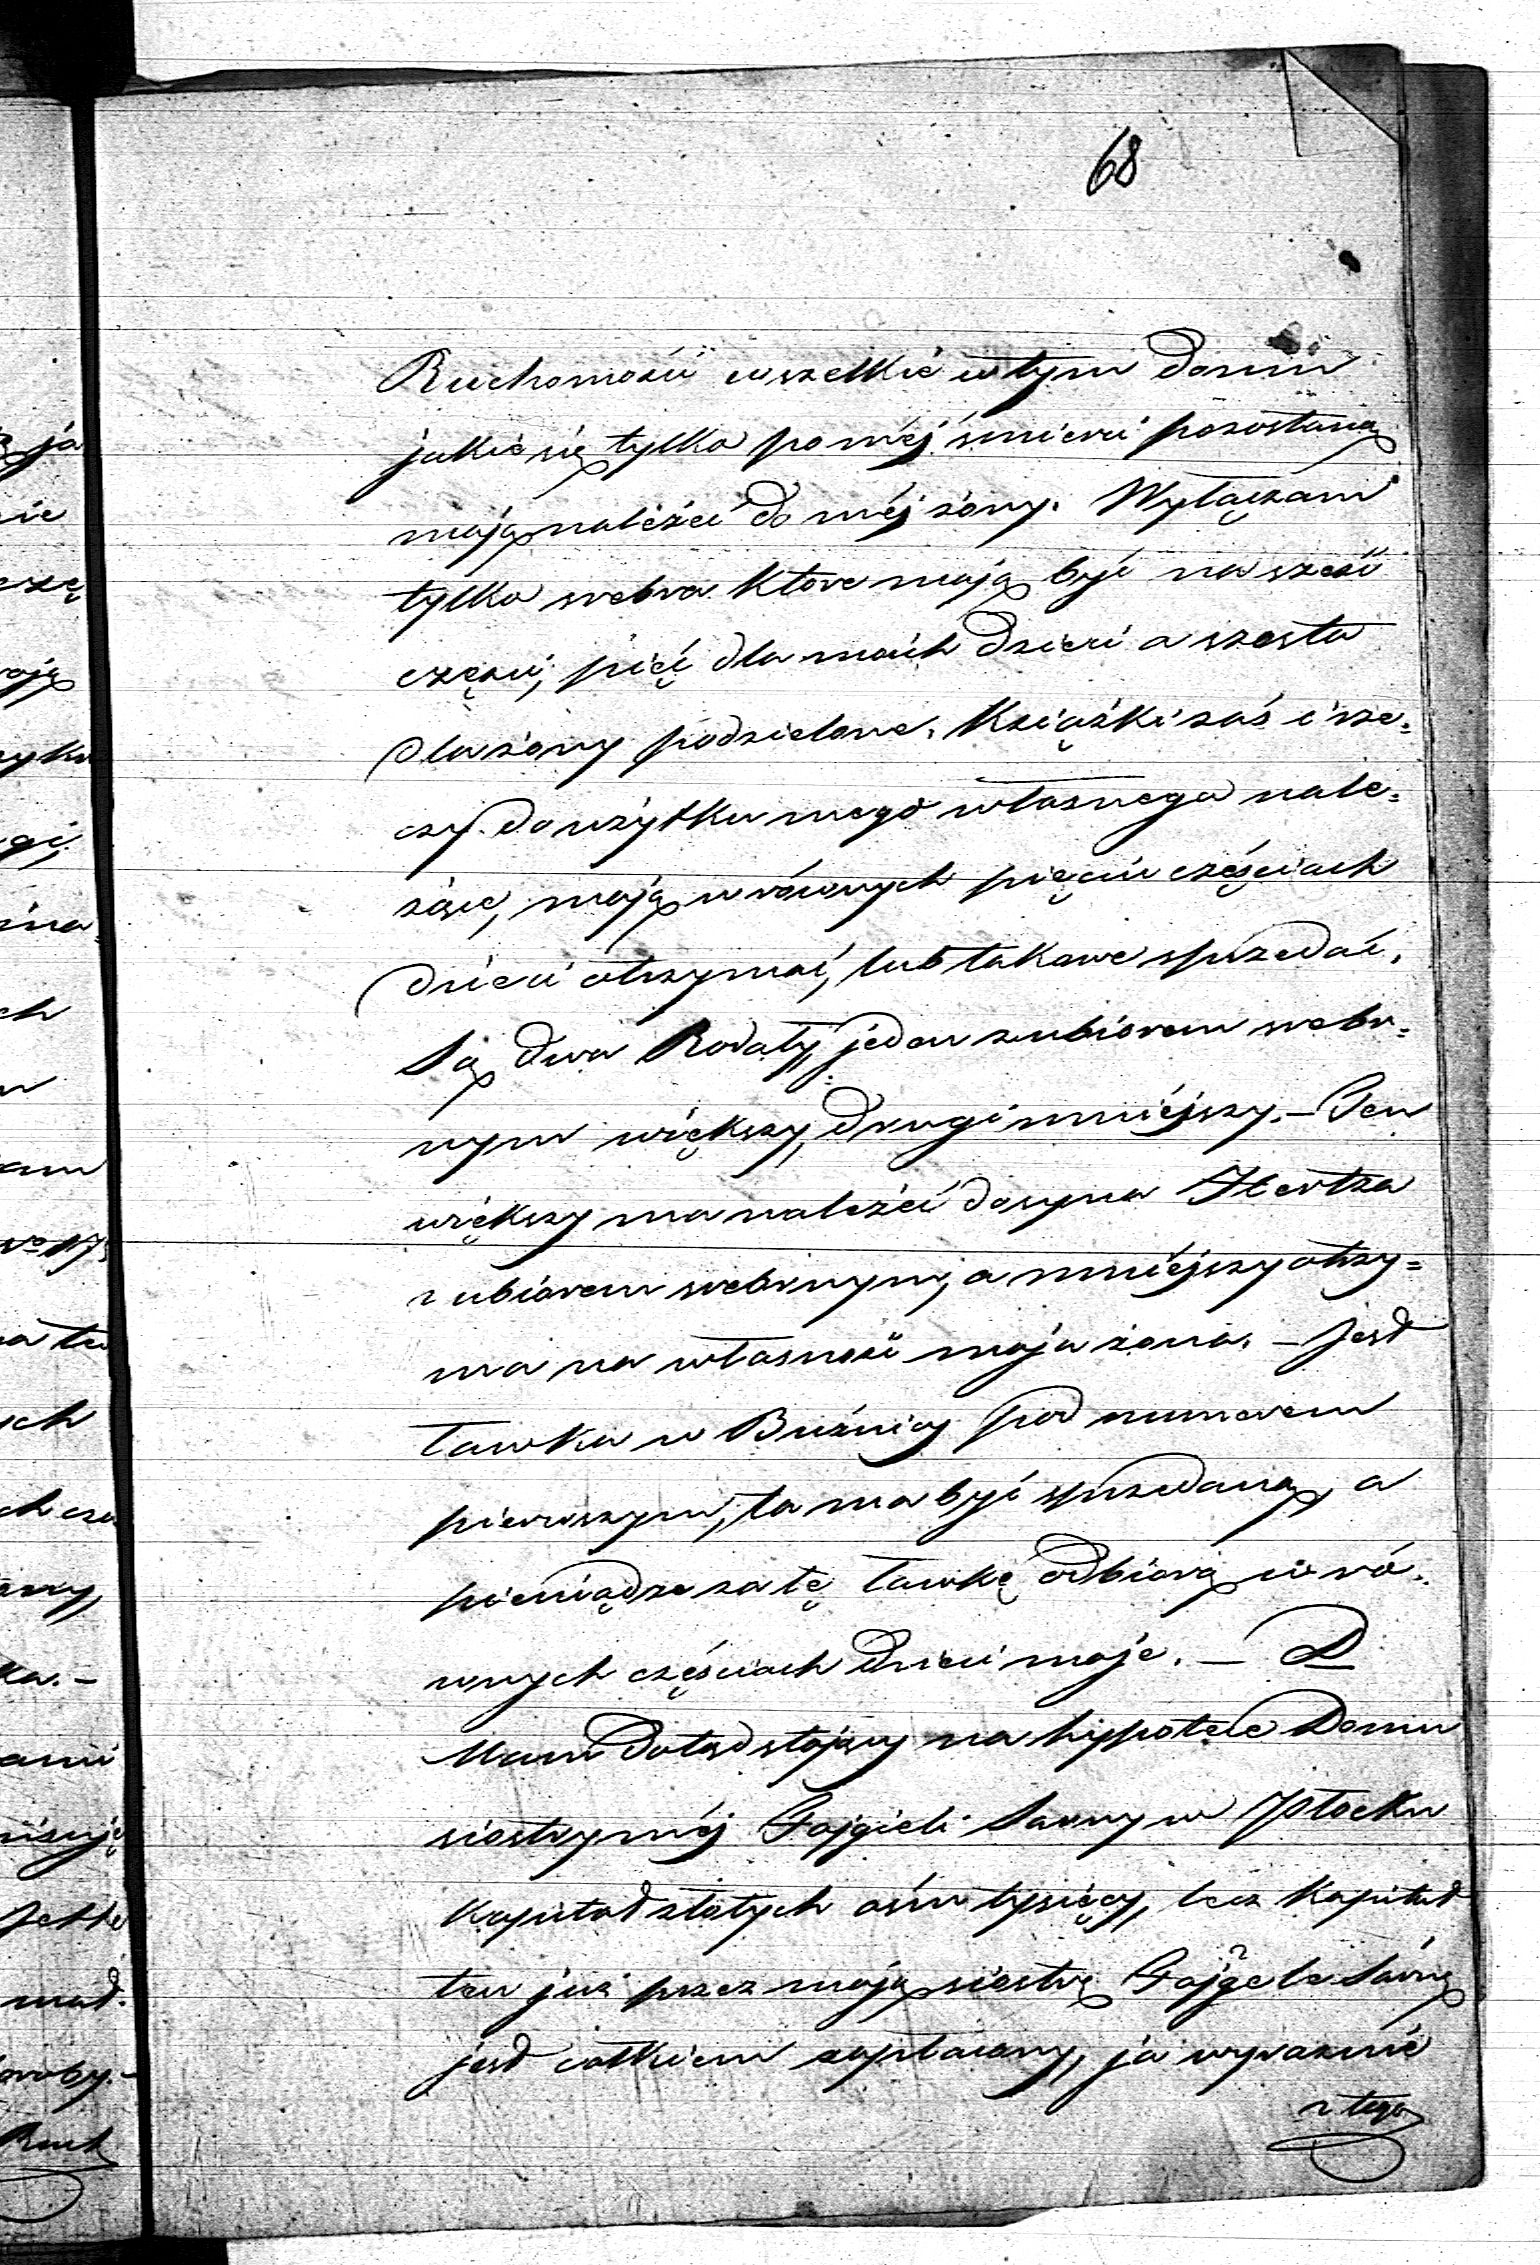 68
Ruchomości wszelkie w tym domu
jakie się tylko po méj śmierci pozostaną
mają należeć do méj żony. Wyłączam
tylko srebra które mają być na sześć
części, pięć dla moich dzieci a szosta
dla żony podzielone. Książki zaś i rze=
czy do użytku mego własnego nale=
żące, mają w równych pięciu częściach
dzieci otrzymać, lub takowe sprzedać.
Są dwa Rodały, jeden z ubiorem srebr=
nym większy, drugi mniéjszy. – Ten
większy ma należeć do syna Hertza
z ubiorem srebrnym, a mniéjszy otrzy=
ma na własność moja żona. – Jest
ławka w Bużnicy pod numerem
pierwszym, ta ma być sprzedaną, a
pieniądze za tę ławkę odbiorą w ró=
wnych częściach dzieci moje. –
Mam dotąd stojący na hypotece Domu
siostry méj Fajgieli Sanny w Płocku
kapitał złotych ośm tysięcy, lecz kapitał
ten już przez moją siostrę Fajgele
jest całkiem zapłacony, ja wyraznie
z tego
ja
nie
czę
ach
am
ych
Jette
oroby. –
Ruch